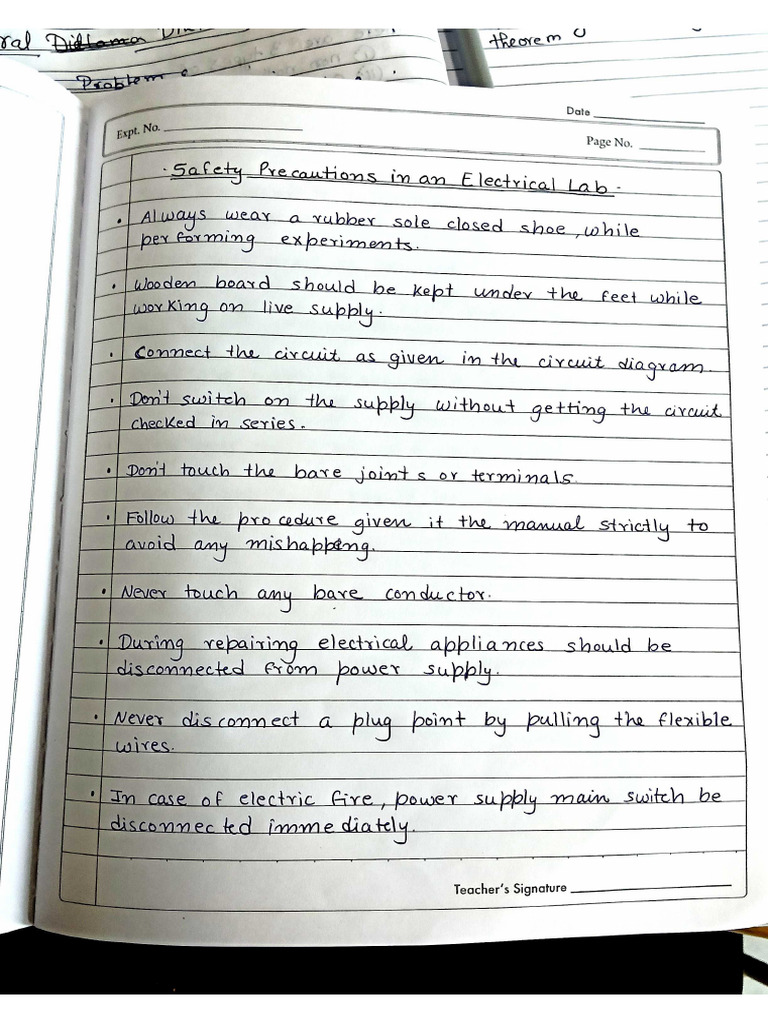 ral Dillama
Problem
theorem
Date
Expt. No.
Page No.
Safety Precautions in an Electrical Lab.
• Always wear a rubber sole closed shoe, while
performing experiments.
• Wooden board should be kept under the feet while
working on live supply.
• Connect the circuit as given in the circuit diagram.
• Don't switch on the supply without getting the circuit
checked in series.
• Don't touch the bare joints or terminals.
• Follow the procedure given it the manual strictly to
avoid any mishappeng.
• Never touch any bare conductor.
• During repairing electrical appliances should be
disconnected from power supply.
• Never disconnect a plug point by pulling the flexible
wires.
• In case of electric fire, power supply main switch be
disconnected immediately.
Teacher's Signature